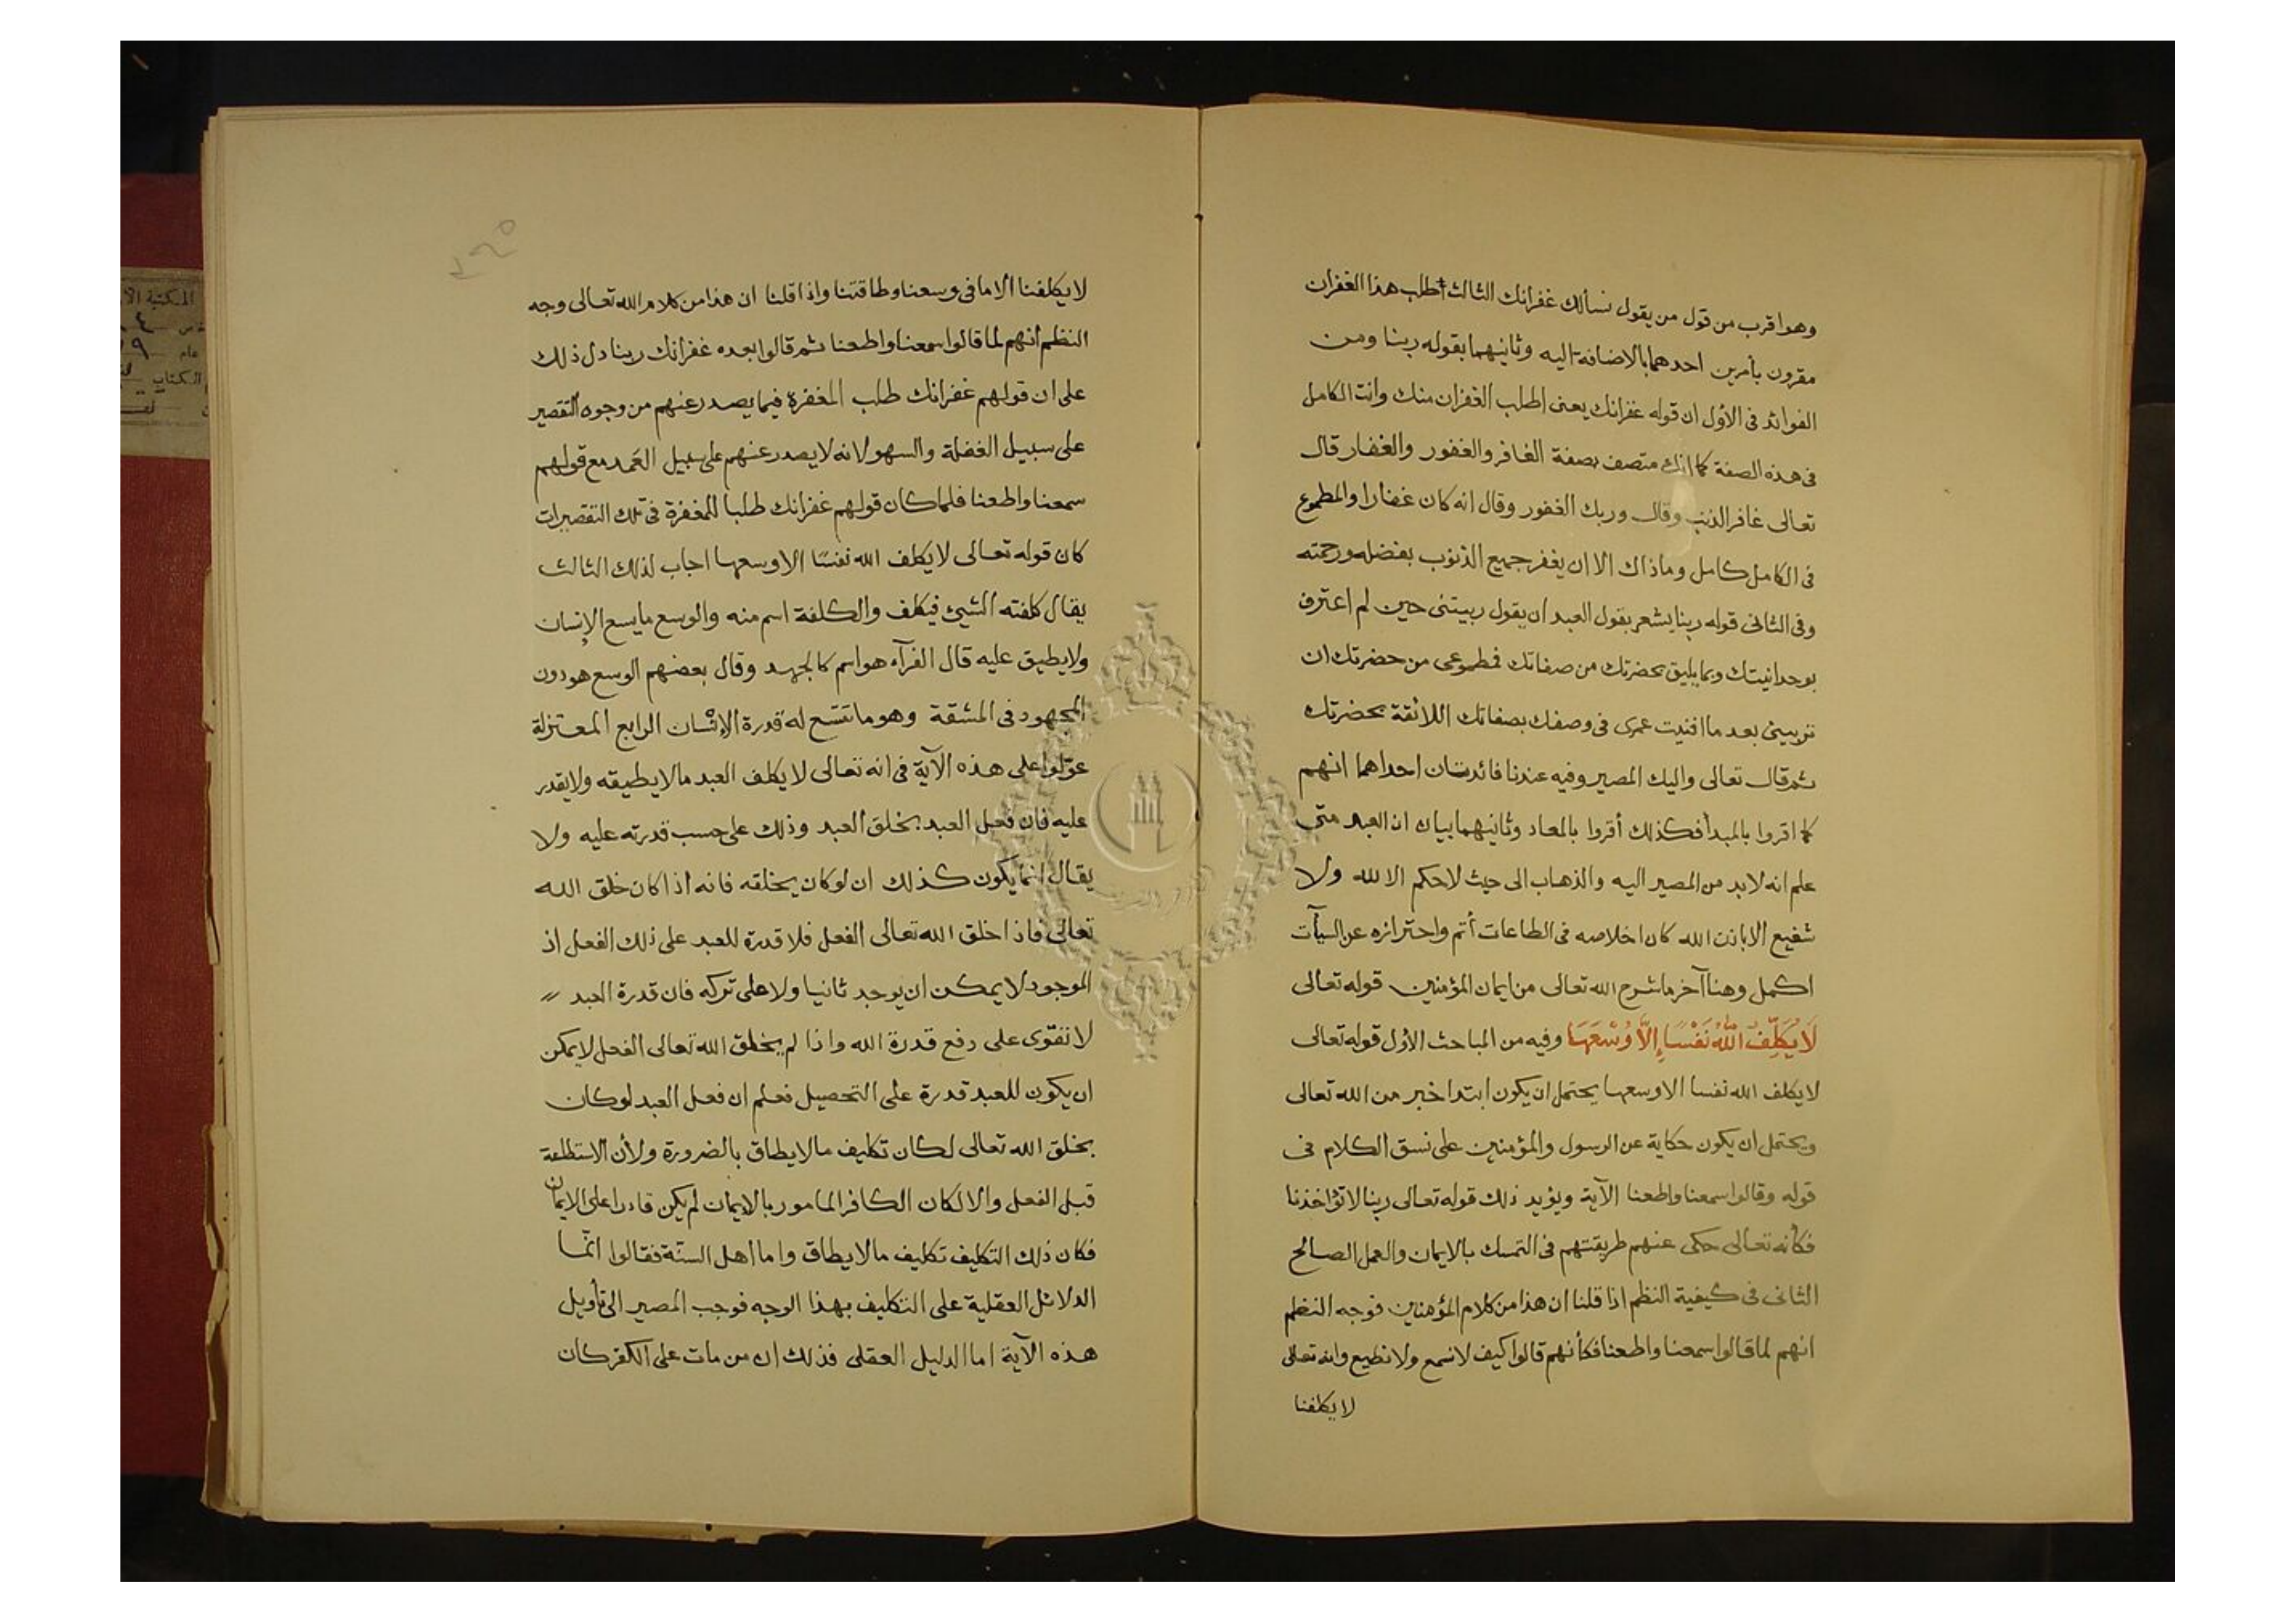 وهو اقرب من قول من يقول نسألك غفرانك الثالث أطلب هذا الغفران
مقرون بأمرين احدهما بالاضافة اليه وثانيهما بقوله ربنا ومن
الفوائد في الاول ان قوله غفرانك يعنى اطلب الغفران منك وانت الكامل
فى هذه الصفة كما انك متصف بصفة الغافر والغفور والغفار قال
تعالى غافر الذنب وقال وربك الغفور وقال انه كان غفارا والمطموع
فى الكامل كامل وماذاك الا ان يغفر جميع الذنوب بفضله ورحمته
وفى الثانى قوله ربنا يشعر بقول العبد ان يقول ربيتنى حين لم اعترف
بوحدانيتك وبما يليق بحضرتك من صفاتك فمطموعى من حضرتك ان
تربينى بعد ما افنيت عمرى فى وصفك بصفاتك اللائقة بحضرتك
ثم قال تعالى واليك المصير وفيه عندنا فائدتان احداهما انهم
كما اقروا بالمبدأ فكذلك أقروا بالمعاد وثانيهما بيان ان العبد متى
علم انه لابد من المصير اليه والذهاب الى حيث لاحكم الا لله ولا
شفيع الا باذن الله كان اخلاصه فى الطاعات أتم واحترازه عن السيآت
اكمل وهنا آخر ما شرح الله تعالى من ايمان المؤمنين قوله تعالى
لَا يُكَلِّفُ اللَّهُ نَفْسًا إِلَّا وُسْعَهَا وفيه من المباحث الاول قوله تعالى
لا يكلف الله نفسا الا وسعها يحتمل ان يكون ابتدا خبر من الله تعالى
ويحتمل ان يكون حكاية عن الرسول والمؤمنين على نسق الكلام فى
قوله وقالوا سمعنا واطعنا الآية ويؤيد ذلك قوله تعالى ربنا لا تؤاخذنا
فكأنه تعالى حكى عنهم طريقتهم فى التمسك بالايمان والعمل الصالح
الثانى فى كيفية النظم اذا قلنا ان هذا من كلام المؤمنين فوجه النظم
انهم لما قالوا سمعنا واطعنا فكأنهم قالوا كيف لا نسمع ولا نطيع وانه تعالى
لا يكلفنا
لا يكلفنا الا ما فى وسعنا وطاقتنا واذا قلنا ان هذا من كلام الله تعالى وجه
النظم أنهم لما قالوا سمعنا واطعنا ثم قالوا بعده غفرانك ربنا دل ذلك
على ان قولهم غفرانك طلب المغفرة فيما يصدر عنهم من وجوه التقصير
على سبيل الغفلة والسهو لانه لا يصدر عنهم على سبيل العمد مع قولهم
سمعنا واطعنا فلما كان قولهم غفرانك طلبا للمغفرة فى تلك التقصيرات
كان قوله تعالى لا يكلف الله نفسًا الا وسعها اجاب لذلك الثالث
يقال كلفته الشيئ فيكلف والكلفة اسم منه والوسع ما يسع الإنسان
ولا يطيق عليه قال الفرآء هو اسم كالجهد وقال بعضهم الوسع هو دون
المجهود فى المشقة وهو ما تتسع له قدرة الإنسان الرابع المعتزلة
عوّلوا على هذه الآية فى انه تعالى لا يكلف العبد ما لا يطيقه ولا يقدر
عليه فان فعل العبد بخلق العبد وذلك على حسب قدرته عليه ولا
يقال انما يكون كذلك ان لو كان يخلقه فانه اذا كان خلق الله
تعالى فاذا خلق الله تعالى الفعل فلا قدرة للعبد على ذلك الفعل اذ
الموجود لا يمكن ان يوجد ثانيا ولا على تركه فان قدرة العبد
لا تقوّى على دفع قدرة الله واذا لم يخلق الله تعالى الفعل لا يمكن
ان يكون للعبد قدرة على التحصيل فعلم ان فعل العبد لو كان
بخلق الله تعالى لكان تكليف ما لا يطاق بالضرورة ولأن الاستطاعة
قبل الفعل والا لكان الكافر المامور بالايمان لم يكن قادرا على الايمان
فكان ذلك التكليف تكليف ما لا يطاق واما أهل السنّة فقالوا انّما
الدلائل العقلية على التكليف بهذا الوجه فوجب المصير الى تأويل
هذه الآية اما الدليل العقلى فذلك ان من مات على الكفر كان